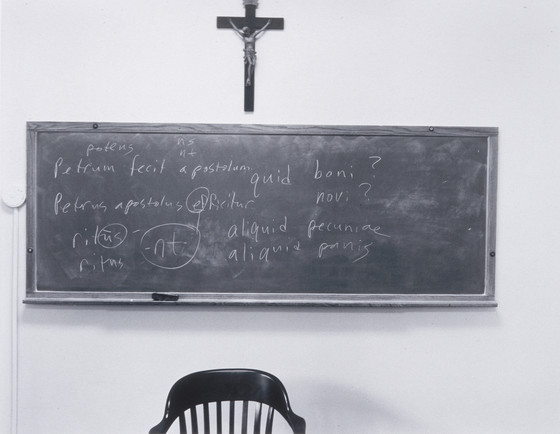 potens
ns
nt
Petrum fecit apostolum
quid boni ?
novi ?
Petrus apostolus efficitur
ritus
-nt-
aliquid pecuniae
ritus
aliquid panis